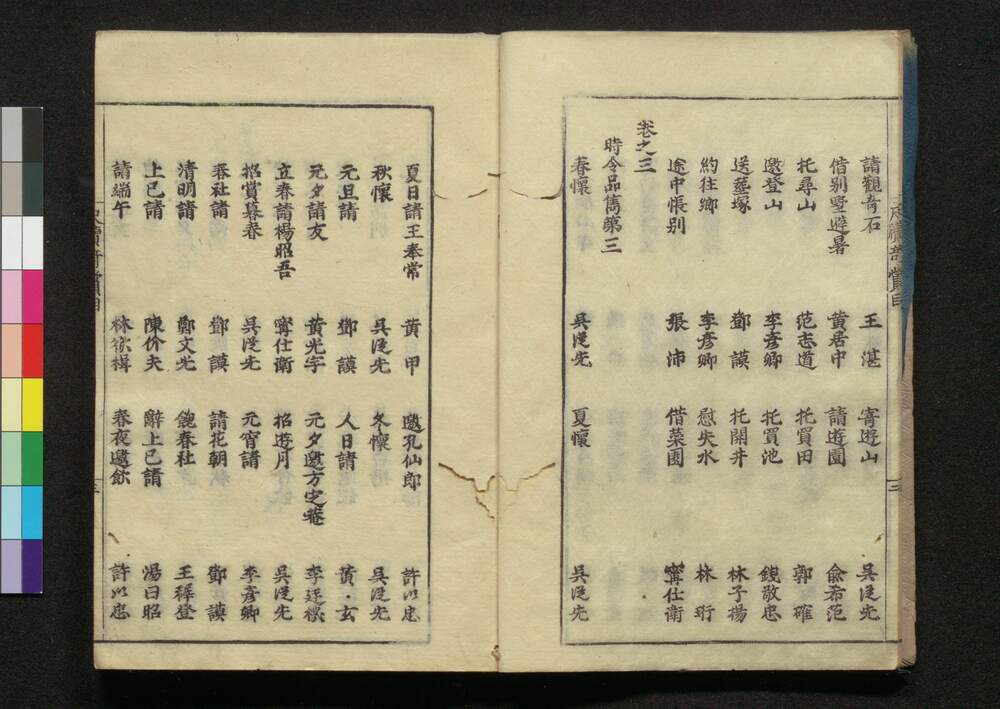 請觀奇石　王湛　寄遊山　吳從先
借別墅避暑　黃居中　請遊園　俞希范
托尋山　范志道　托買田　郭確
邀登山　李彥卿　托買池　錢敬忠
送塟塚　鄧謨　托開井　林子揚
約往鄉　李彥卿　慰失水　林珩
途中悵別　張沛　借菜園　甯仕衛
卷之三
時令品雋第三
春懷　吳從先　夏懷　吳從先
三
夏日請王奉常　黃甲　邀孔仙郎　許以忠
秋懷　吳從先　冬懷　吳從先
元旦請　鄧謨　人日請　黃玄
元夕請友　黃光宇　元夕邀方定菴　李廷機
立春請楊昭吾　甯仕衛　招遊月　吳從先
招賞暮春　吳從先　元宵請　李彥卿
春社請　鄧謨　請花朝　鄧謨
清明請　鄭文光　餽春社　王穉登
上巳請　陳价夫　辭上巳請　湯日昭
請端午　林欲楫　春夜邀飲　許以忠
三